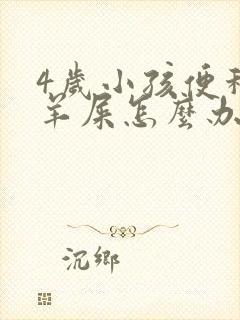 4歲小孩便秘
羊屎怎麼办
沉鄉